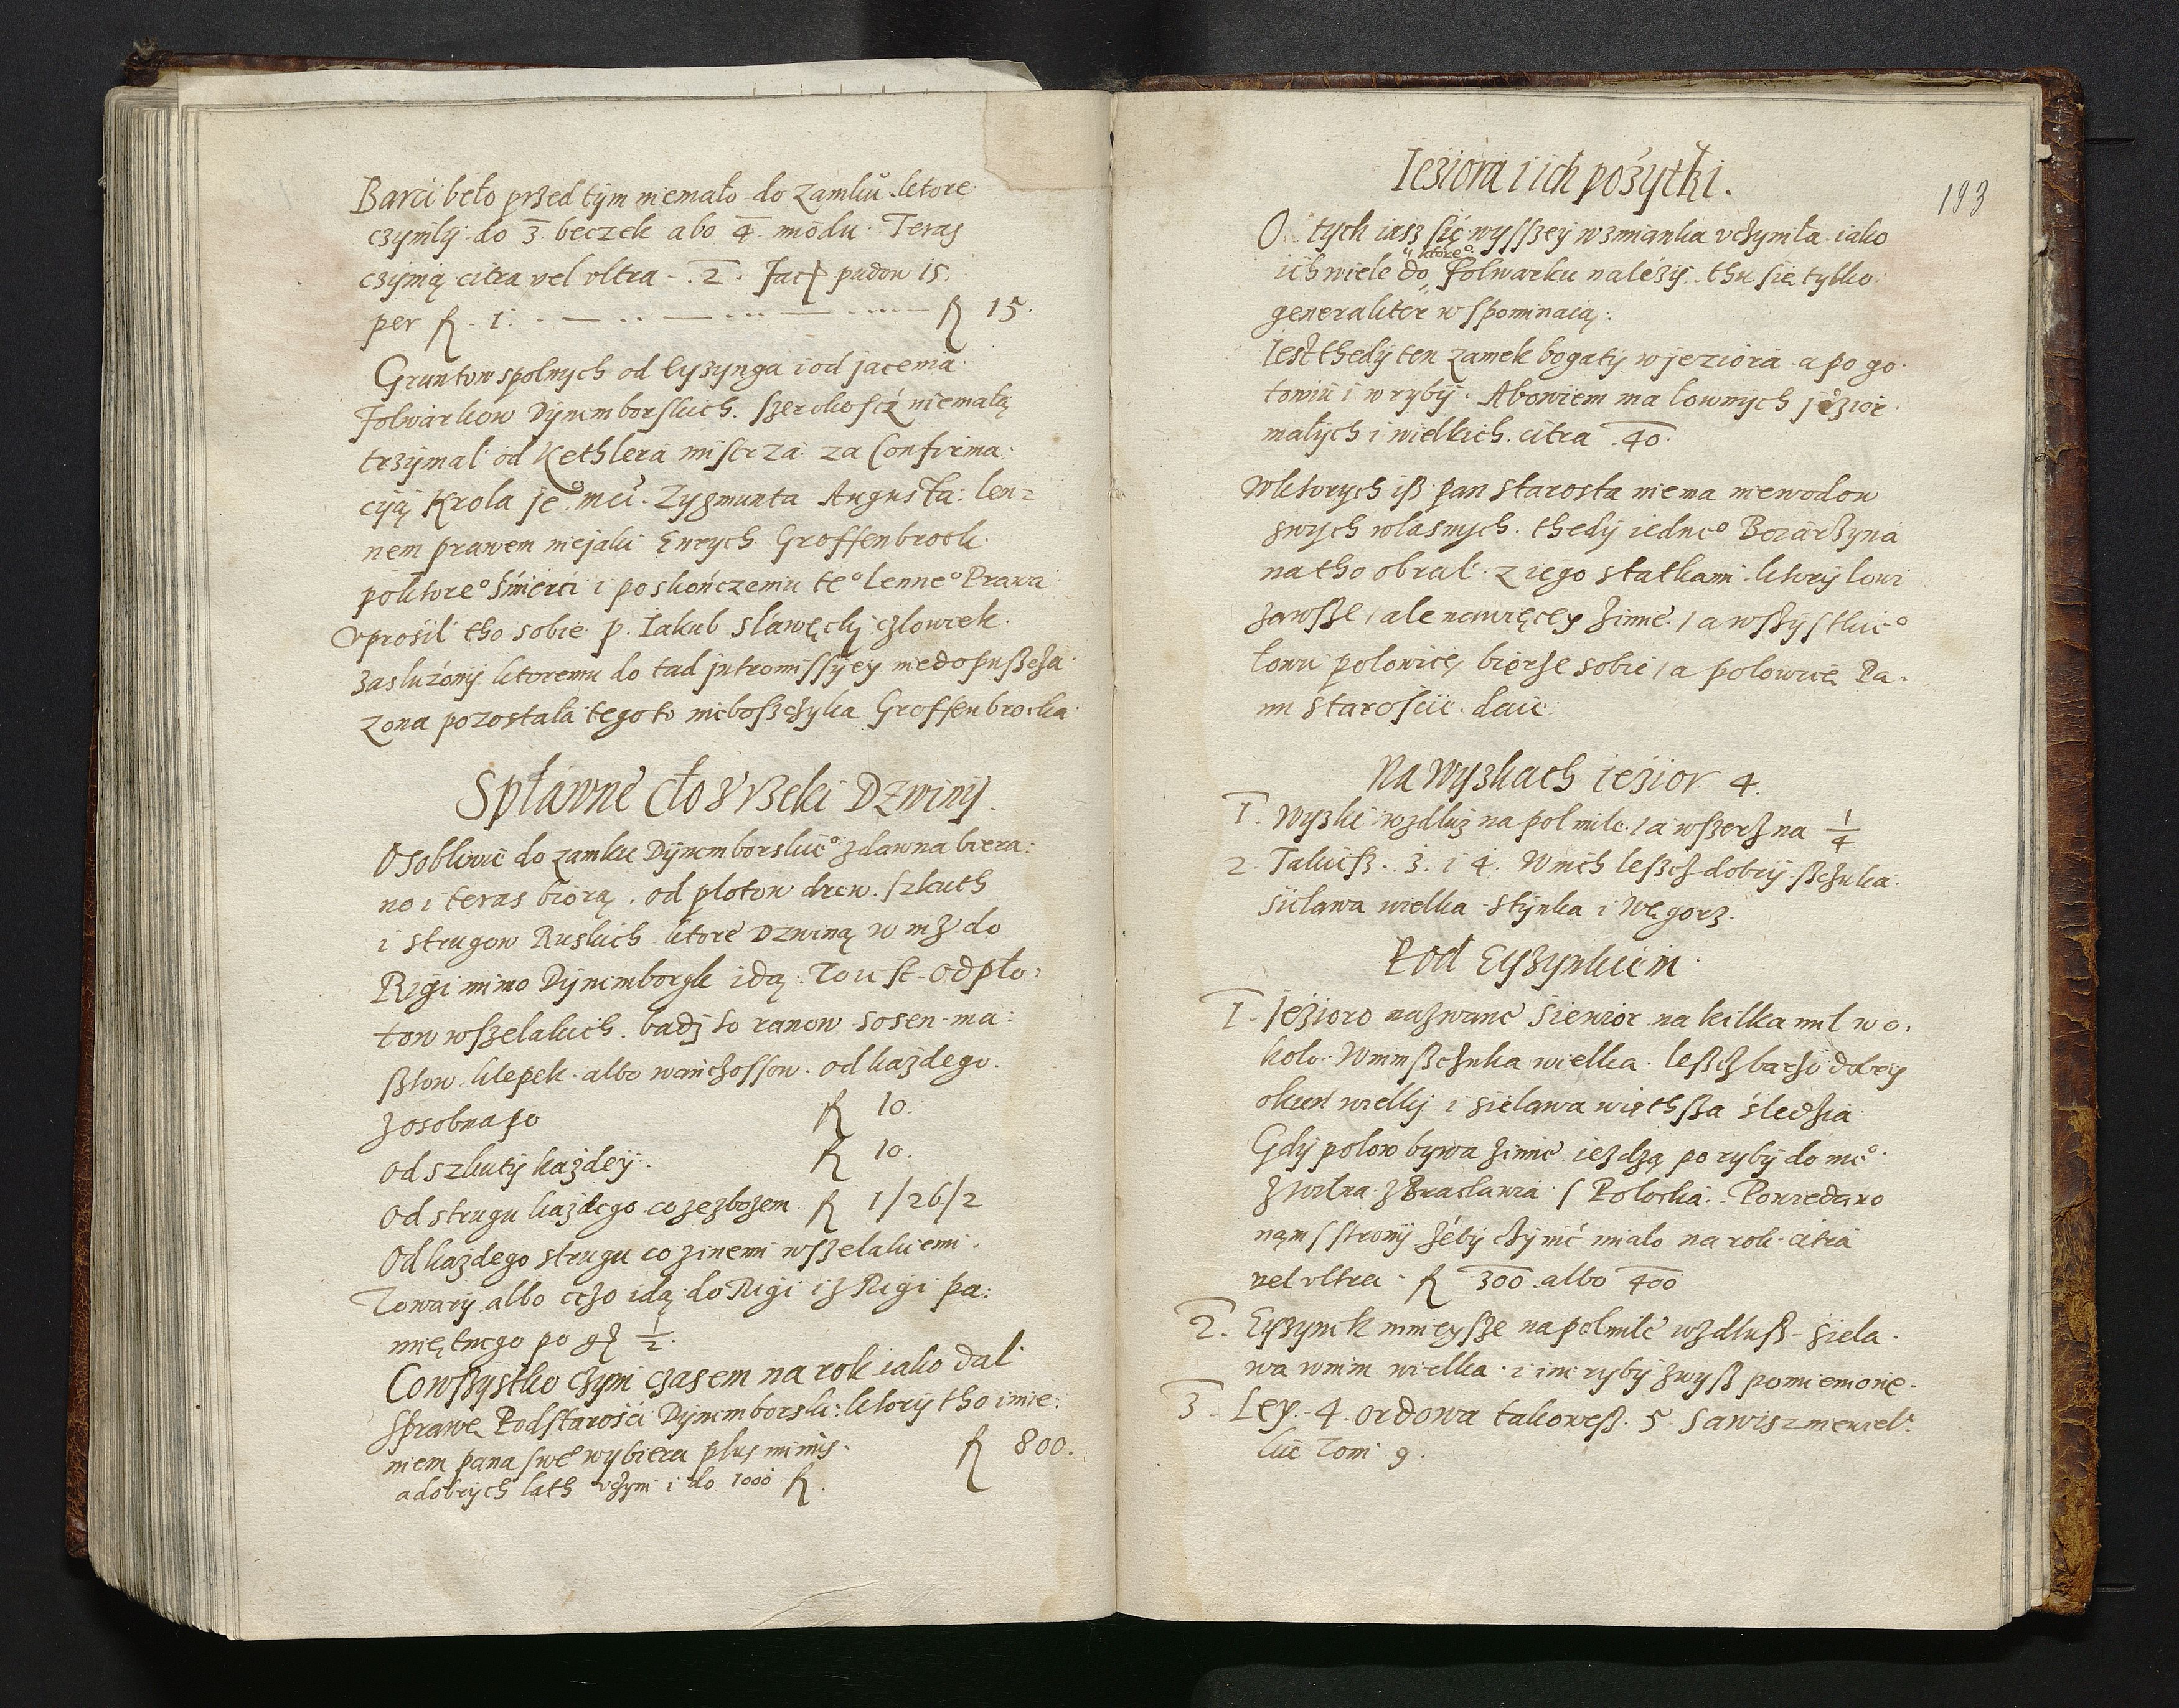 Barci beło przed tÿm niemało do Zamku ktore
czÿnilÿ do 3 beczek abo 4 modu Teras
czÿnią citra vel vltra 2 facit pudow 15
per fl 1 fl 15
Gruntow spolnych od Eyzynga i od jacenia
Folwarkow Dÿnemborskich szerokoscz niemałą
trzÿmał od Kethlera mistrza za Confirma:
cÿją Krola je mci Zygmunta Augusta len=
nem prawem niejaki Enrych Groffenbrock
po ktore° śmierci i po skończeniu te° lenne° Prawa
vprosił tho sobie p. Iakub Sławęcky człowiek
zasłużonÿ ktoremu do tad jntromissÿey niedopuszcza
zona pozostała tegoto nieboszczyka Groffenbrocka
Spławne Cło z rzeki Dzwinÿ
Osobliwie do zamku Dÿnemborskie° zdawna biera:
no i teras biorą od płotow drew szkuth
i strugow Ruskich ktore Dzwiną w niż do
Rÿgi mimo Dÿnemborgk idą To iest od pło:
tow wszelakich badz to ranow sosen ma:
sztow klepek albo wańczossow od każdego
z osobna po fl 10
od szkutÿ każdeÿ fl 10
od strugu każdego co ze zbożem fl 1/26/2
Od każdego strugu co z inemi wszelakiemi
Towarÿ albo czo idą do Rigi i z Rigi pa:
miętnego po gr 1/2
Co wszystko czyni czasem na rok iako dał
sprawę Podstarości Dÿnemborski ktorÿ tho imie:
niem pana swe° wybiera plus minus fl 800.
a dobrÿch lath vczyni i do 1000 fl
193
Ieziora i ich pożytki.
O tych iasz się wysszeÿ wzmianka vczyniła iako
ich wiele do ktore° folwarku należÿ thu się tylko
generaliter wspominaią
Iest thedÿ ten zamek bogatÿ w jeziora a po go
towiu i w rÿbÿ Abowiem ma łownÿch jezior
małÿch i wielkich citra 40
W ktorych isz pan Starosta niema niewodow
swych własnÿch thedÿ iedne° Bozarszyna
na tho obrał z iego statkami ktorÿ łowi
zawsze / ale nawięcey zimie / a wszÿstkie°
łowu połowicę bierze sobie / a połowicę Pa
nu Starościie daie
Na Wyzkach iezior 4
1. Wyzki wzdłuż na poł mile / a wszerz na 1/4
2. Takiesz 3 i 4 W nich leszcz dobrÿ szczuka
sielawa wielka stÿnka i Węgorz.
Pod Eyzynkiem
1 Jezioro nazwane Siewior na kilka mil wo
koło W nim szczuka wielka leszcz barzo dobrÿ
okuń wielkÿ i sielawa więthsza śledzia
Gdÿ połow bywa zimie iezdzą po rÿbÿ do nie°
z Wilna z Bracławia s Połocka Powiedano
nąm s stronÿ żebÿ czÿnić miało na rok citra
vel vltra fl 300 albo 400
2. Eyzynek mnieysze na poł mile wzdłusz siela
wa w nim wielka i ine rÿbÿ zwysz pomienione
3 Ley 4 ordowa takowesz 5